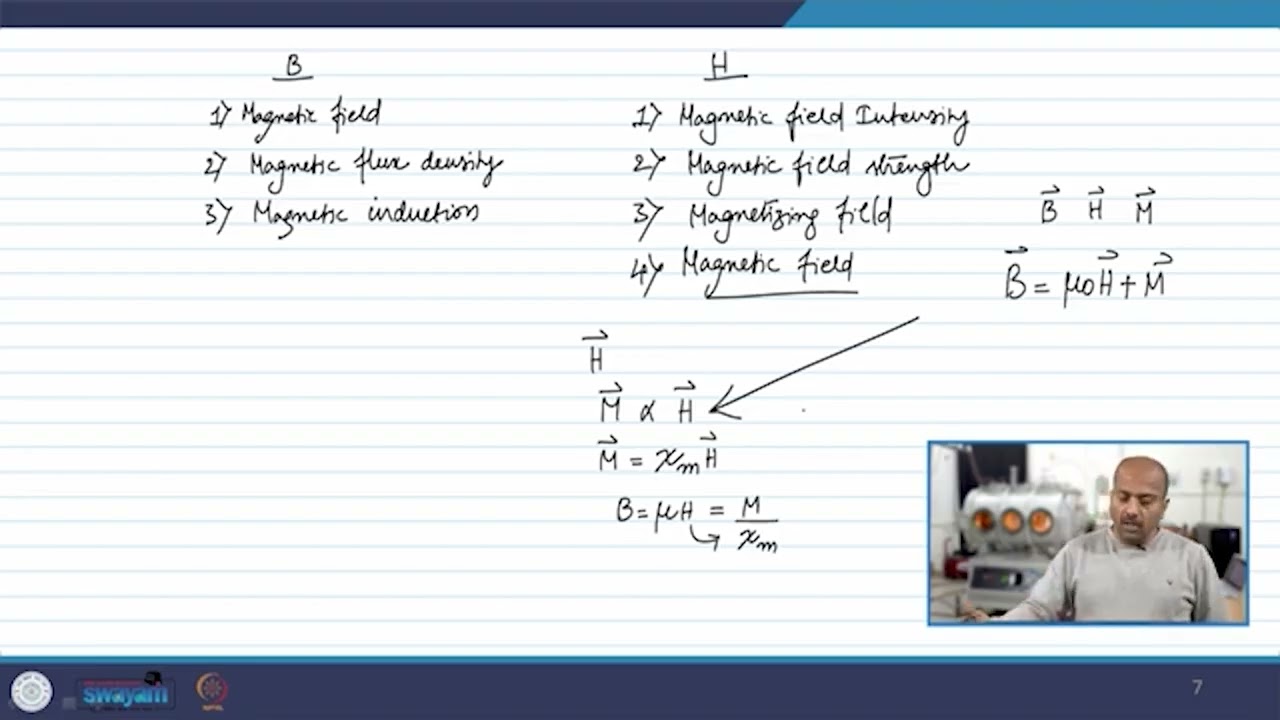 B
1) Magnetic field
2) Magnetic flux density
3) Magnetic induction
H
1) Magnetic field Intensity
2) Magnetic field strength
3) Magnetizing field
4) Magnetic field
B⃗ H⃗ M⃗
B⃗ = μ0H⃗ + M⃗
H⃗
M⃗ ∝ H⃗
M⃗ = χmH⃗
B = μH = M/χm
swayam
7